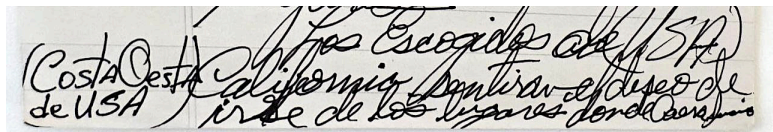 Los Escogidos de USA
(Costa Oesta
de USA)
California sentiran el deseo de
irse de los lugares donde